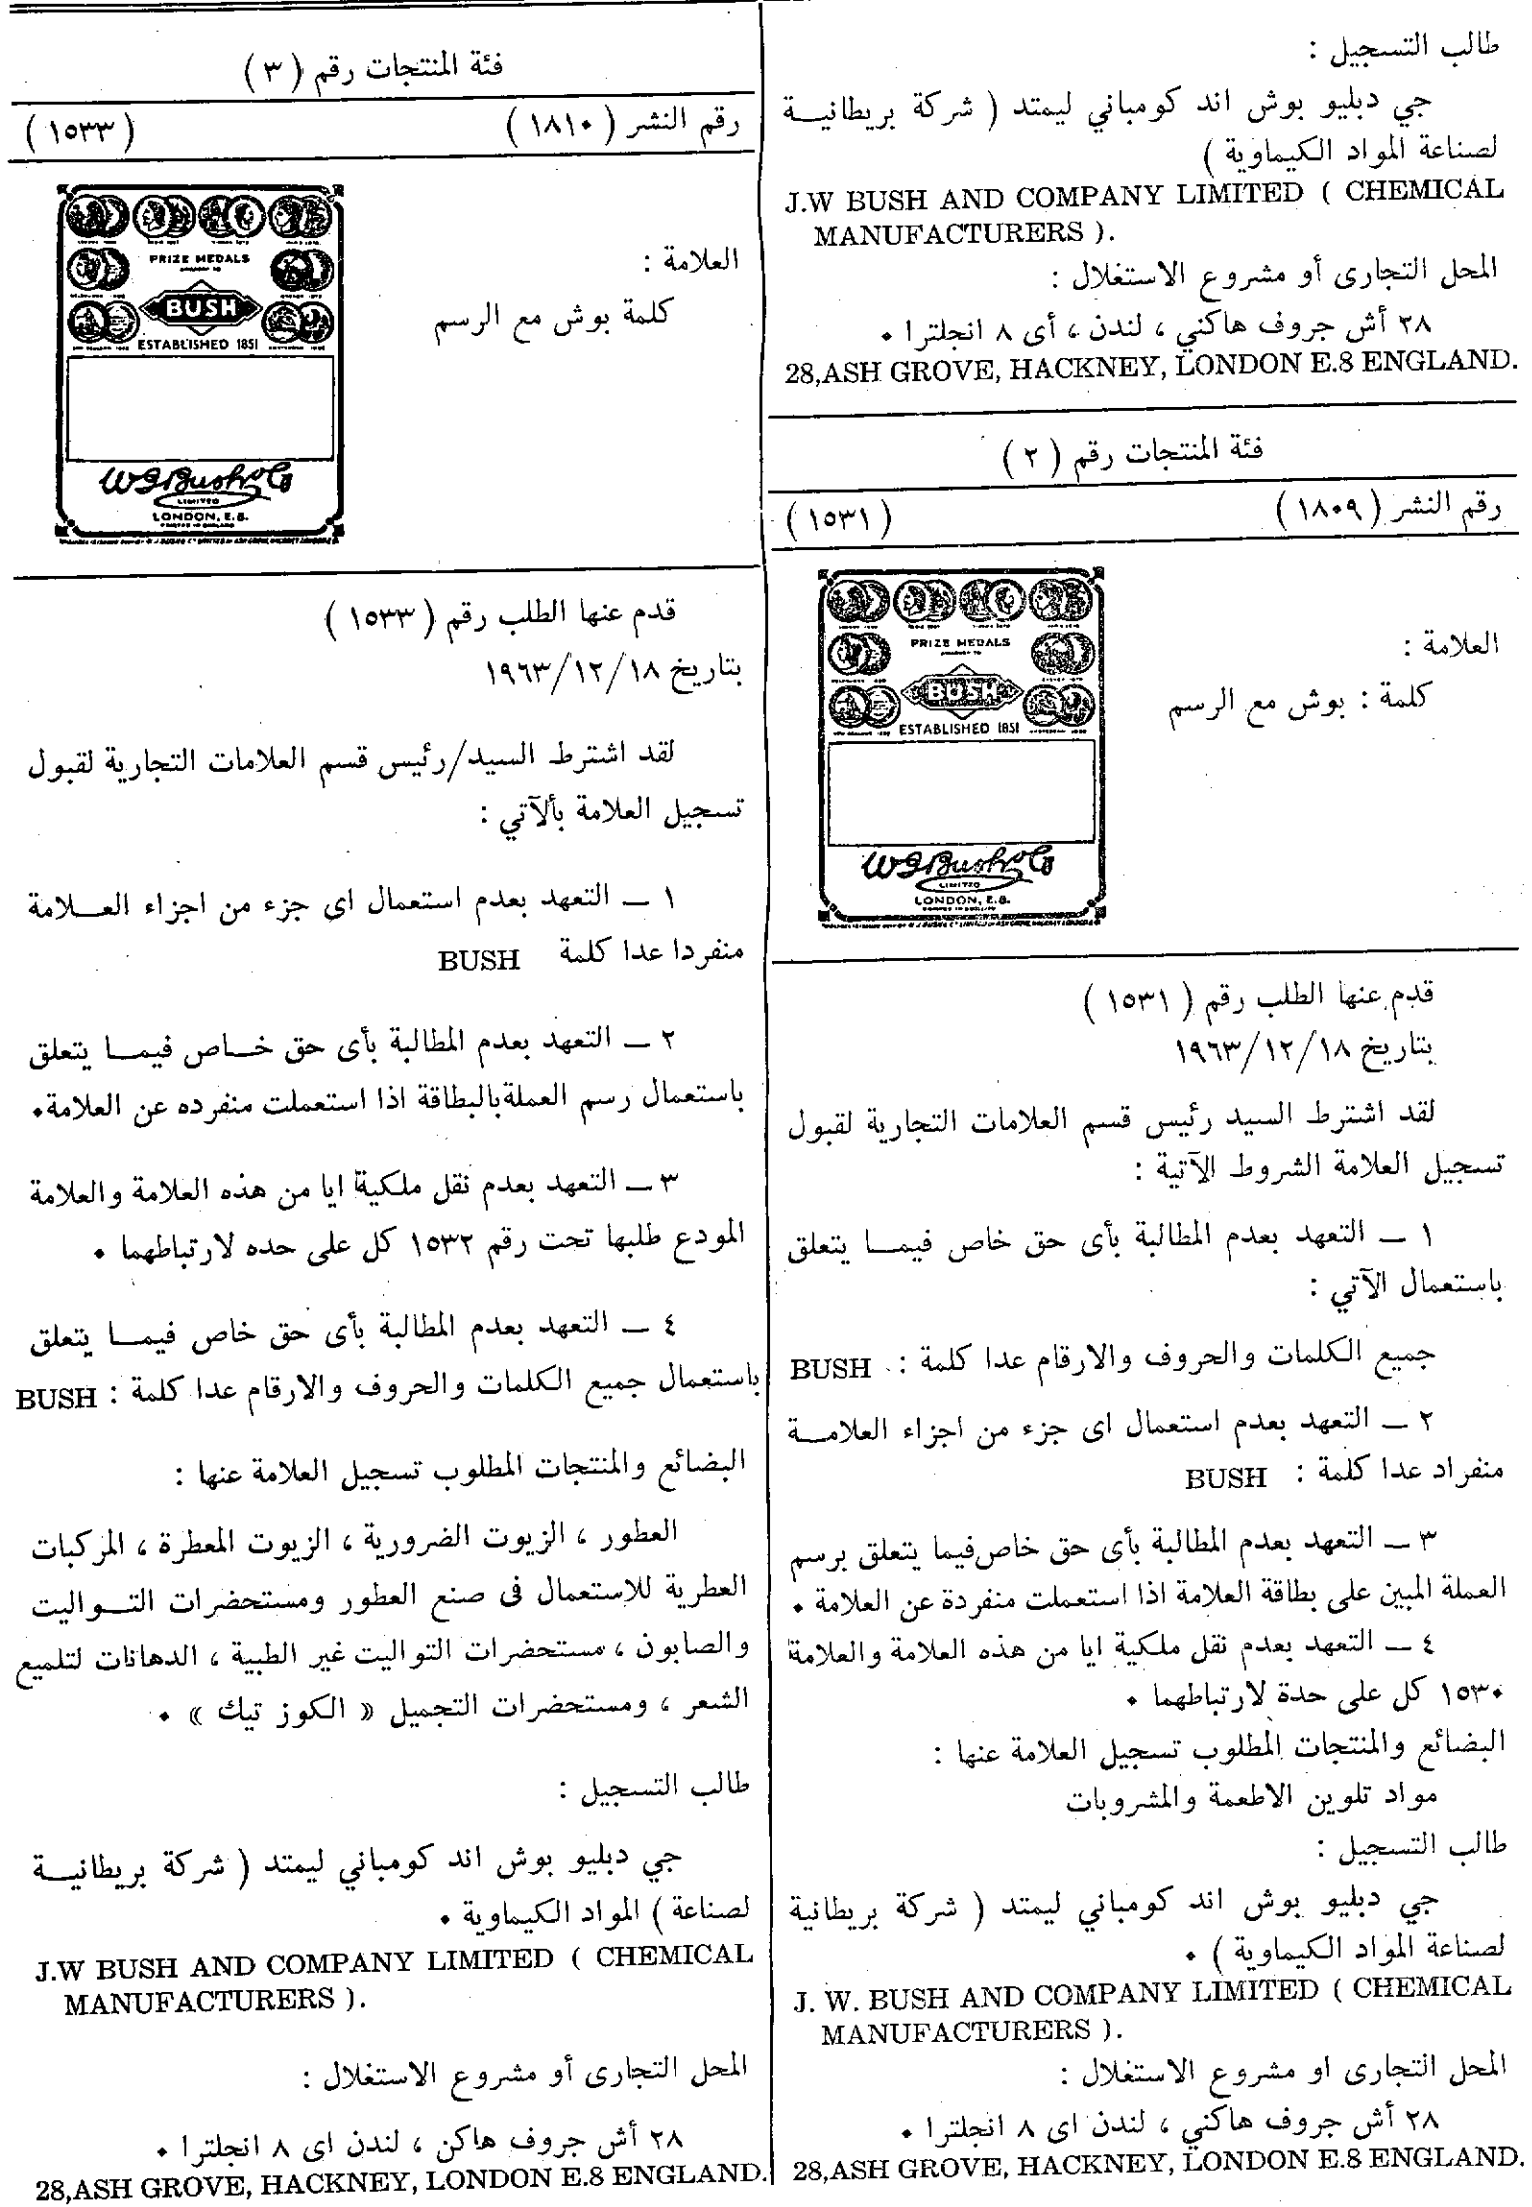 طالب التسجيل :
جي دبليو بوش اند كومباني ليمتد ( شركة بريطانيـــة
لصناعة المواد الكيماوية )
J.W BUSH AND COMPANY LIMITED ( CHEMICAL
MANUFACTURERS ).
المحل التجارى أو مشروع الاستغلال :
٢٨ أش جروف هاكني ، لندن ، أى ٨ انجلترا ٠
28,ASH GROVE, HACKNEY, LONDON E.8 ENGLAND.
فئة المنتجات رقم ( ٢ )
رقم النشر ( ١٨٠٩ ) ( ١٥٣١ )
العلامة :
كلمة : بوش مع الرسم
PRIZE MEDALS
BUSH
ESTABLISHED 1851
W J Bush & Co
LIMITED
LONDON, E.8.
قدم عنها الطلب رقم ( ١٥٣١ )
بتاريخ ١٩٦٣/١٢/١٨
لقد اشترط السيد رئيس قسم العلامات التجارية لقبول
تسجيل العلامة الشروط الآتية :
١ ــ التعهد بعدم المطالبة بأى حق خاص فيمــا يتعلق
باستعمال الآتي :
جميع الكلمات والحروف والارقام عدا كلمة : BUSH
٢ ــ التعهد بعدم استعمال اى جزء من اجزاء العلامــة
منفراد عدا كلمة : BUSH
٣ ــ التعهد بعدم المطالبة بأى حق خاص فيما يتعلق برسم
العملة المبين على بطاقة العلامة اذا استعملت منفردة عن العلامة ٠
٤ ــ التعهد بعدم نقل ملكية ايا من هذه العلامة والعلامة
١٥٣٠ كل على حدة لارتباطهما ٠
البضائع والمنتجات المطلوب تسجيل العلامة عنها :
مواد تلوين الاطعمة والمشروبات
طالب التسجيل :
جي دبليو بوش اند كومباني ليمتد ( شركة بريطانية
لصناعة المواد الكيماوية ) ٠
J. W. BUSH AND COMPANY LIMITED ( CHEMICAL
MANUFACTURERS ).
المحل التجارى او مشروع الاستغلال :
٢٨ أش جروف هاكني ، لندن اى ٨ انجلترا ٠
28,ASH GROVE, HACKNEY, LONDON E.8 ENGLAND.
فئة المنتجات رقم ( ٣ )
رقم النشر ( ١٨١٠ ) ( ١٥٣٣ )
العلامة :
كلمة بوش مع الرسم
PRIZE MEDALS
BUSH
ESTABLISHED 1851
W J Bush & Co
LIMITED
LONDON, E.8.
قدم عنها الطلب رقم ( ١٥٣٣ )
بتاريخ ١٩٦٣/١٢/١٨
لقد اشترط السيد/رئيس قسم العلامات التجارية لقبول
تسجيل العلامة بألآتي :
١ ــ التعهد بعدم استعمال اى جزء من اجزاء العـــلامة
منفردا عدا كلمة BUSH
٢ ــ التعهد بعدم المطالبة بأى حق خـــاص فيمــا يتعلق
باستعمال رسم العملة بالبطاقة اذا استعملت منفرده عن العلامة٠
٣ ــ التعهد بعدم نقل ملكية ايا من هذه العلامة والعلامة
المودع طلبها تحت رقم ١٥٣٢ كل على حده لارتباطهما ٠
٤ ــ التعهد بعدم المطالبة بأى حق خاص فيمــا يتعلق
باستعمال جميع الكلمات والحروف والارقام عدا كلمة : BUSH
البضائع والمنتجات المطلوب تسجيل العلامة عنها :
العطور ، الزيوت الضرورية ، الزيوت المعطرة ، المركبات
العطرية للاستعمال فى صنع العطور ومستحضرات التــواليت
والصابون ، مستحضرات التواليت غير الطبية ، الدهانات لتلميع
الشعر ، ومستحضرات التجميل « الكوز تيك » ٠
طالب التسجيل :
جي دبليو بوش اند كومباني ليمتد ( شركة بريطانيـــة
لصناعة ) المواد الكيماوية ٠
J.W BUSH AND COMPANY LIMITED ( CHEMICAL
MANUFACTURERS ).
المحل التجارى أو مشروع الاستغلال :
٢٨ أش جروف هاكن ، لندن اى ٨ انجلترا ٠
28,ASH GROVE, HACKNEY, LONDON E.8 ENGLAND.